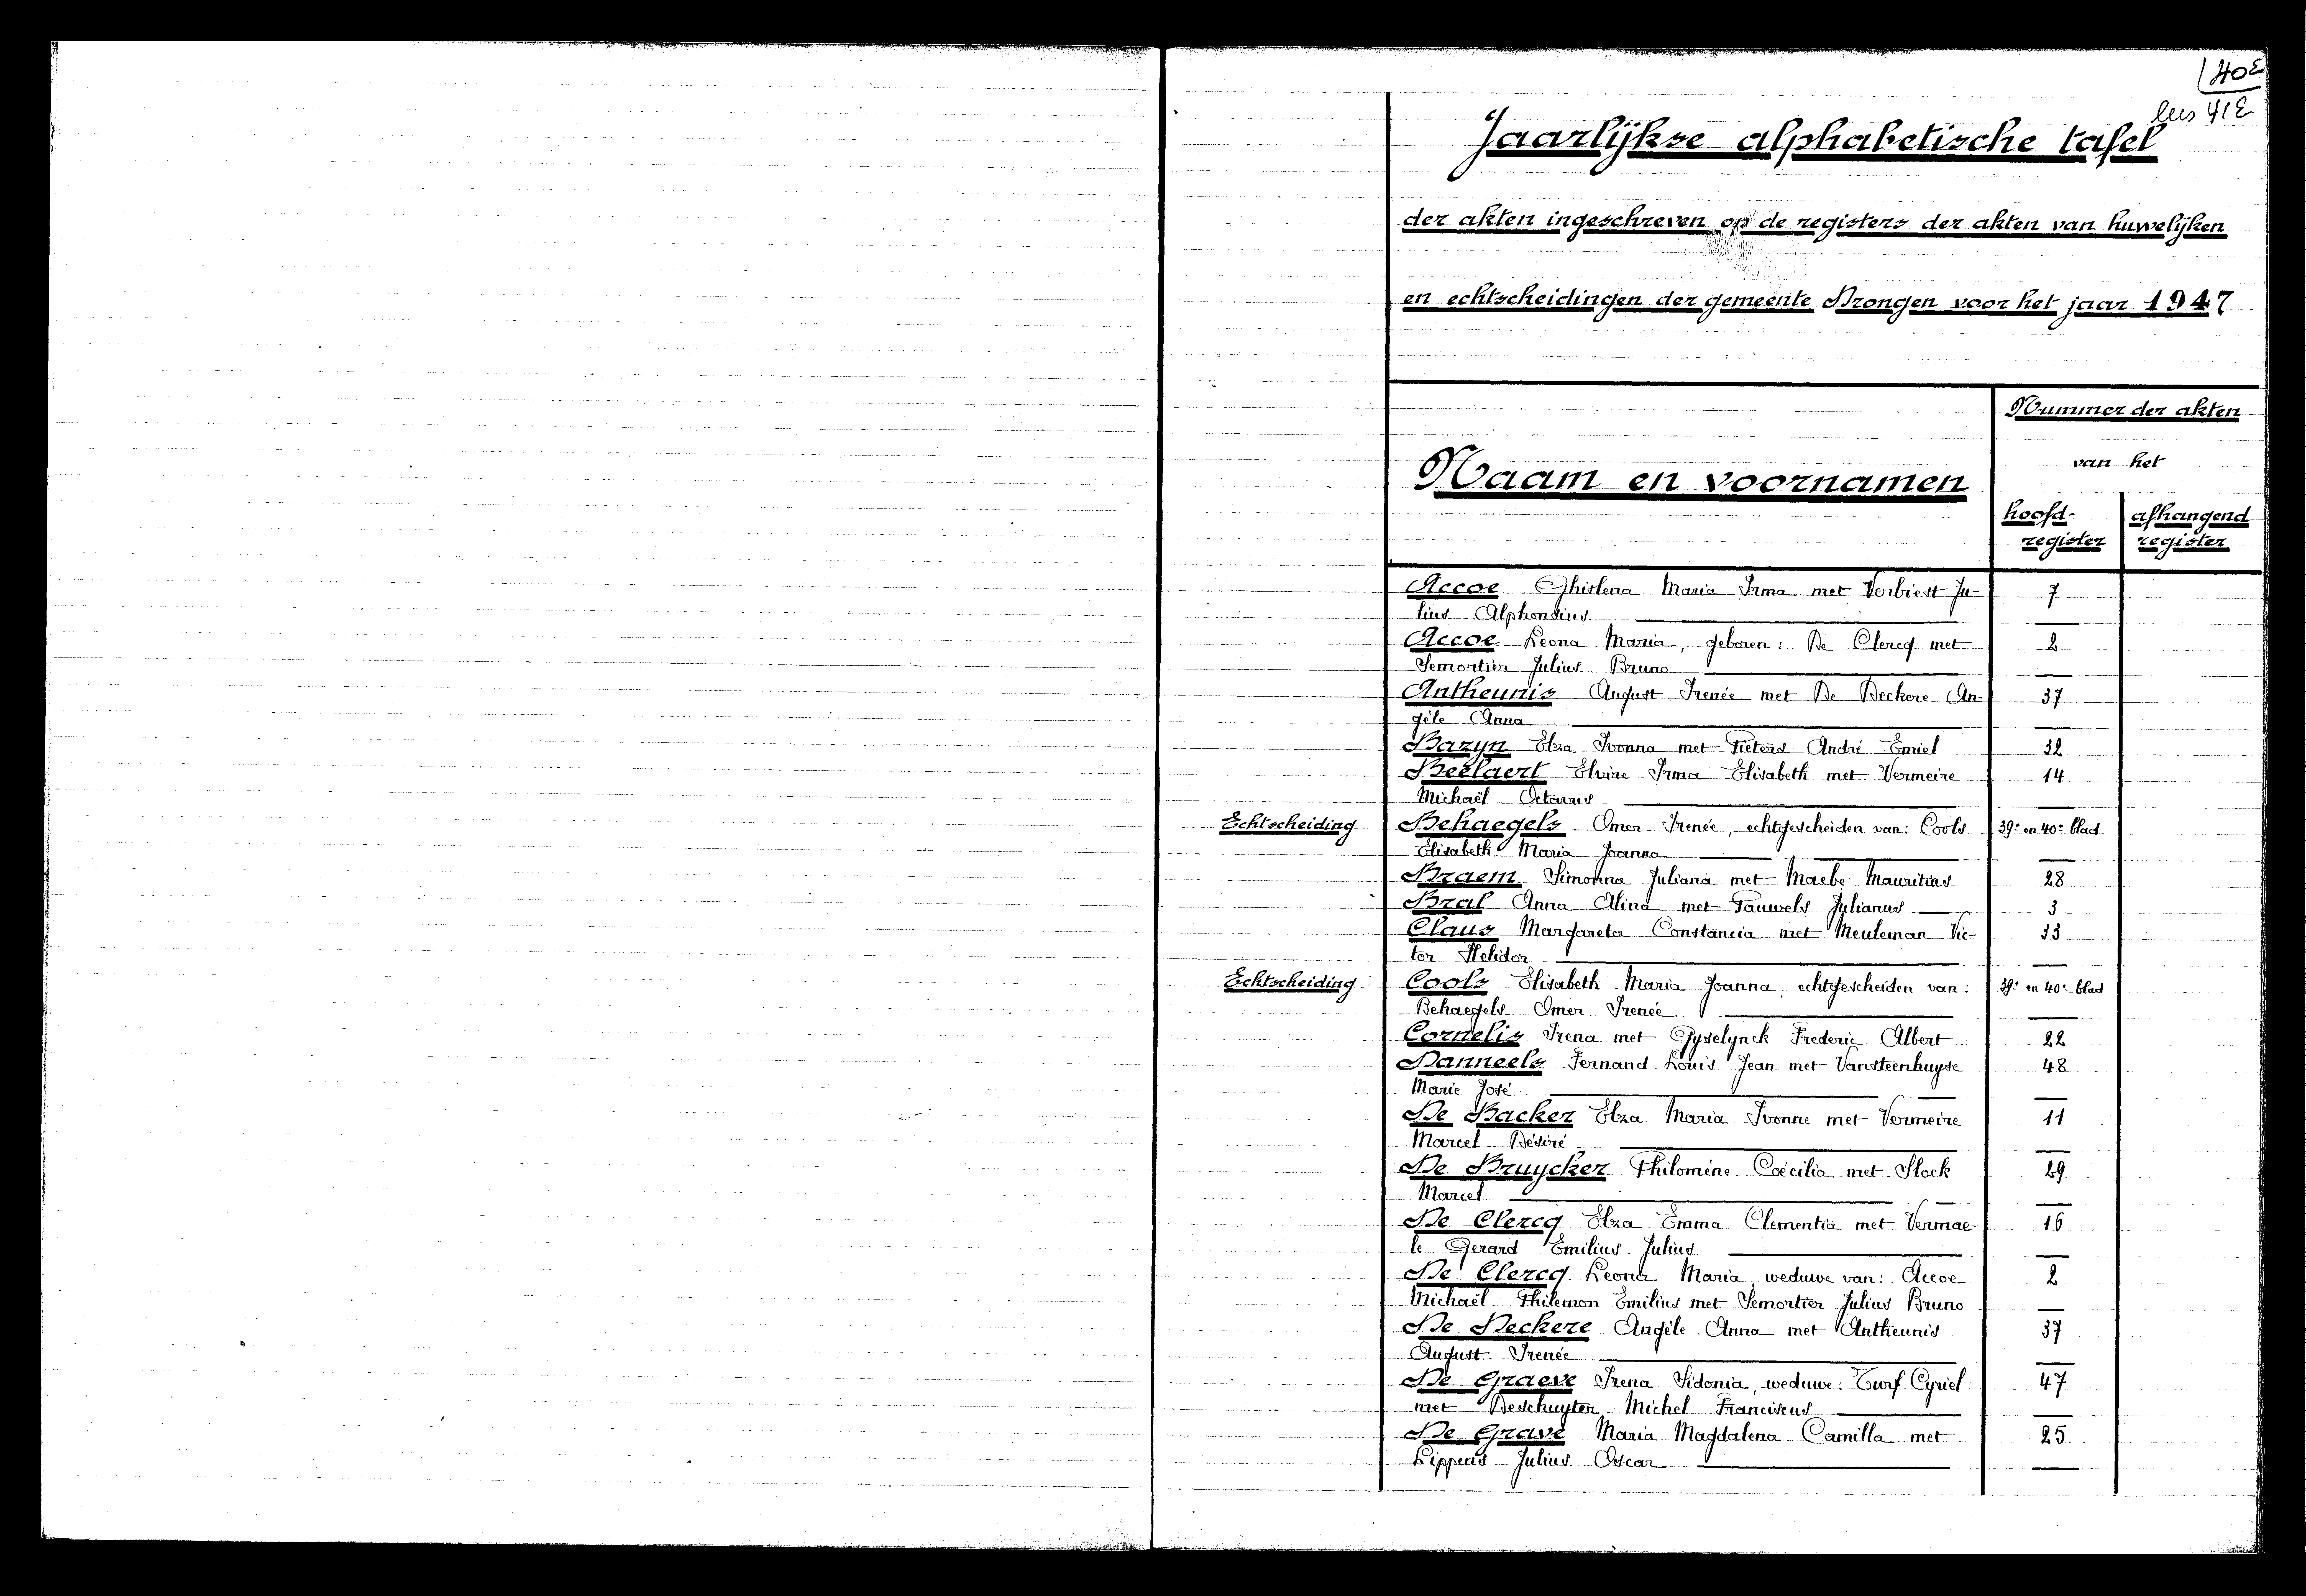 40E
lees 41E
Jaarlijkse alphabetische tafel
der akten ingeschreven op de registers der akten van huwelijken
en echtscheidingen der gemeente Drongen voor het jaar 1947
Nummer der akten
van het
Naam en voornamen
hoofd- afhangend
register register
Accoe Ghislena Maria Irma met Verbiest Ju- 7
lius Alphonsius
Accoe Leona Maria, geboren: De Clercq met 2
Demortier Julius Bruno
Antheunis August Irenée met De Deckere An- 37
gèle Anna
Bazyn Elza Ivonna met Pieters André Emiel 32
Beelaert Elvire Irma Elisabeth met Vermeire 14
Michaël Octavus
Echtscheiding Behaegels Omer Irenée, echtgescheiden van: Cools 39e en 40e blad
Elisabeth Maria Joanna
Braem Simonna Juliana met Maebe Mauritius 28
Bral Anna Alina met Pauwels Julianus 3
Claus Margareta Constancia met Meuleman Vic- 33
tor Helidor
Echtscheiding Cools Elisabeth Maria Joanna, echtgescheiden van: 39e en 40e blad
Behaegels Omer Irenée
Cornelis Irena met Gyselynck Frederic Albert 22
Danneels Fernand Louis Jean met Vansteenhuyse 48
Marie José
De Backer Elza Maria Ivonne met Vermeire 11
Marcel Désiré
De Bruycker Philomène Coecilia met Stock 29
Marcel
De Clercq Elza Emma Clementia met Vermae- 16
le Gerard Emilius Julius
De Clercq Leona Maria, weduwe van: Accoe 2
Michaël Philemon Emilius met Demortier Julius Bruno
De Deckere Angèle Anna met Antheunis 37
August Irenée
De Graeve Irena Sidonia, weduwe: Turf Cyriel 47
met Deschuyter Michel Franciscus
De Grave Maria Magdalena Camilla met 25
Lippens Julius Oscar